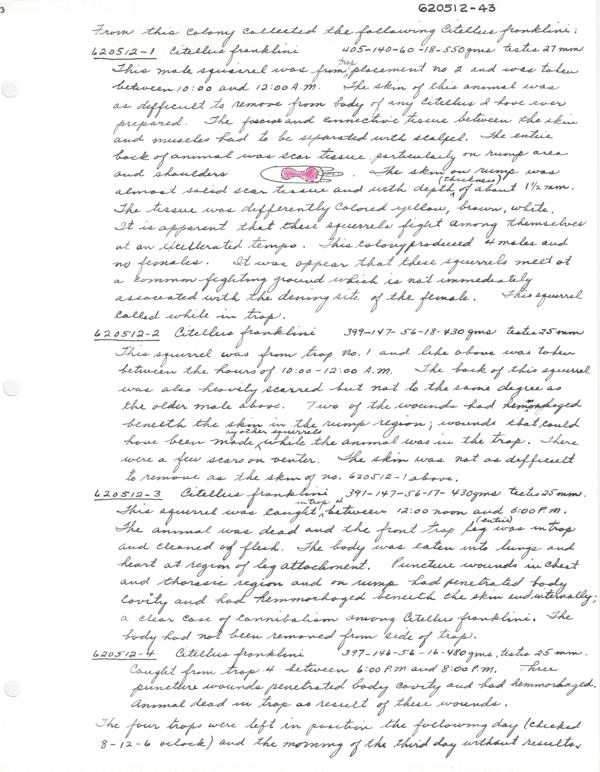 3
620512-43
From this colony collected the following Citellus franklini:
620512-1 Citellus franklini 405-140-60-18-550gms testis 27mm
This male squirrel was from trap placement no 2 and was taken
between 10:00 and 12:00 A.M. The skin of this animal was
as difficult to remove from body of any Citellus I have ever
prepared. The foscia and connective tissue between the skin
and muscles had to be separated with scalpel. The entire
back of animal was scar tissue, particularly on rump area
and shoulders . The skin on rump was
almost solid scar tissue and with depth (thickness) of about 1½ mm.
The tissue was differently colored yellow, brown, white.
It is apparent that these squirrels fight among themselves
at an excellerated tempo. This colony produced 4 males and
no females. It was appear that these squirrels meet at
a common fighting ground which is not immediately
associated with the dening site of the female. This squirrel
called while in trap.
620512-2 Citellus franklini 399-147-56-18-430gms testis 25mm
This squirrel was from trap No. 1 and like above was taken
between the hours of 10:00-12:00 A.M. The back of this squirrel
was also heavily scarred but not to the same degree as
the older male above. Two of the wounds had hemorrhaged
beneath the skin in the rump region; wounds that could
have been made by other squirrels while the animal was in the trap. There
were a few scars on venter. The skin was not as difficult
to remove as the skin of no. 620512-1 above.
620512-3 Citellus franklini 391-147-56-17-430gms testis 25mm.
This squirrel was caught in trap 4 between 12:00 noon and 6:00 P.M.
The animal was dead and the front trap leg (entire) was in trap
and cleaned of flesh. The body was eaten into lungs and
heart at region of leg attachment. Puncture wounds in chest
and thorasic region and on rump had penetrated body
cavity and had hemmorhaged beneath the skin and internally;
a clear case of cannibalism among Citellus franklini. The
body had not been removed from side of trap.
620512-4 Citellus franklini 397-146-56-16-480gms, testis 25mm.
Caught from trap 4 between 6:00 P.M and 8:00 P.M. Three
puncture wounds penetrated body cavity and had hemmorhaged.
Animal dead in trap as result of these wounds.
The four traps were left in position the following day (checked
8-12-6 oclock) and the morning of the third day without results.